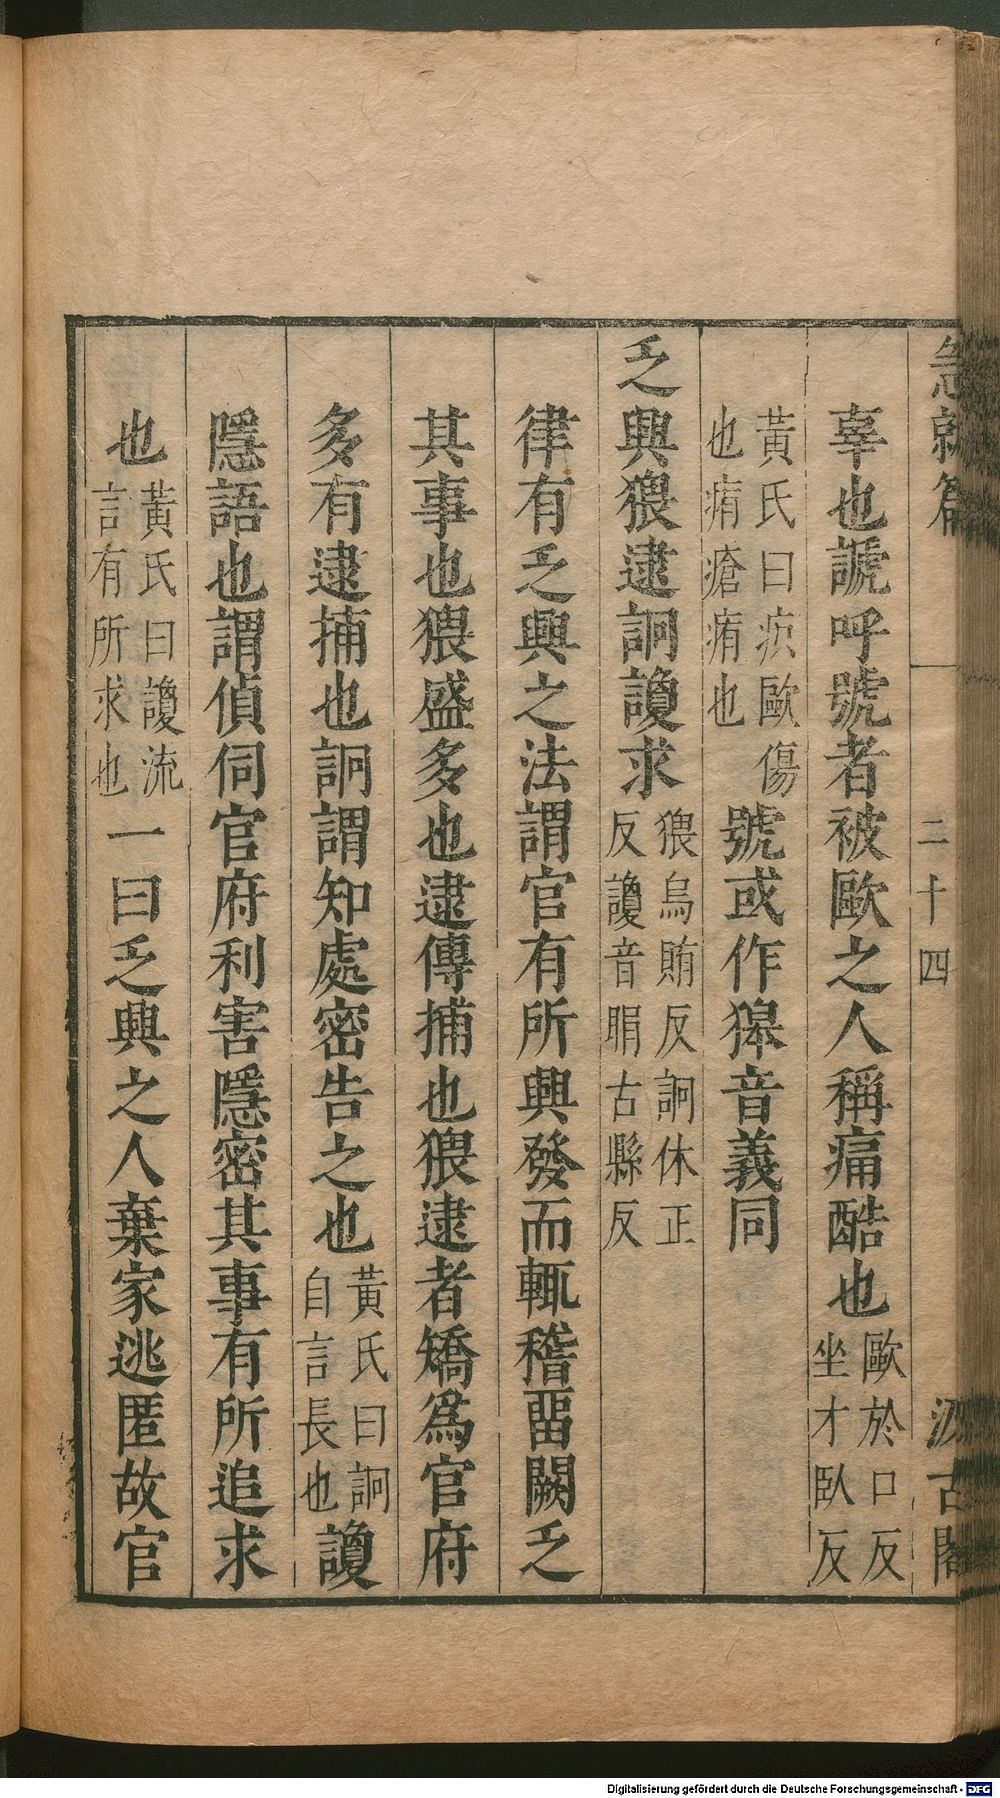 急就篇 二十四 汲古閣
辜也謕呼號者被歐之人稱痛酷也歐於口反坐才臥反
黃氏曰疻歐傷也痏瘡痏也號或作獋音義同
乏興猥逮詗讂求猥烏賄反詗休正反讂音睊古縣反
律有乏興之法謂官有所興發而輒稽畱闕乏
其事也猥盛多也逮傳捕也猥逮者矯爲官府
多有逮捕也詗謂知處密告之也黃氏曰詗自言長也讂
隱語也謂偵伺官府利害隱密其事有所追求
也黃氏曰讂流言有所求也一曰乏興之人棄家逃匿故官
Digitalisierung gefördert durch die Deutsche Forschungsgemeinschaft - DFG